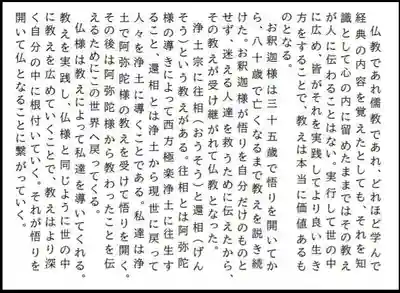 仏教であれ儒教であれ、どれほど学んで
経典の内容を覚えたとしても、それを知
識として心の内に留めたままではその教え
が人に伝わることはない。実行して世の中
に広め、皆がそれを実践してより良い生き
方をすることで、教えは本当に価値あるも
のとなる。
お釈迦様は三十五歳で悟りを開いてか
ら、八十歳で亡くなるまで教えを説き続
けた。お釈迦様が悟りを自分だけのものと
せず、迷える人達を救うために伝えたから、
その教えが受け継がれて仏教となった。
浄土宗に往相（おうそう）と還相（げん
そう）という教えがある。往相とは阿弥陀
様の導きによって西方極楽浄土に往生す
ること、還相とは浄土から現世に戻って
人々を浄土に導くことである。私達は浄
土で阿弥陀様の教えを受けて悟りを開く。
その後は阿弥陀様から教わったことを伝
えるためにこの世界へ戻ってくる。
仏様は教えによって私達を導いてくれる。
教えを実践し、仏様と同じように世の中
に教えを広めていくことで、教えはより深
く自分の中に根付いていく。それが悟りを
開いて仏となることに繋がっていく。